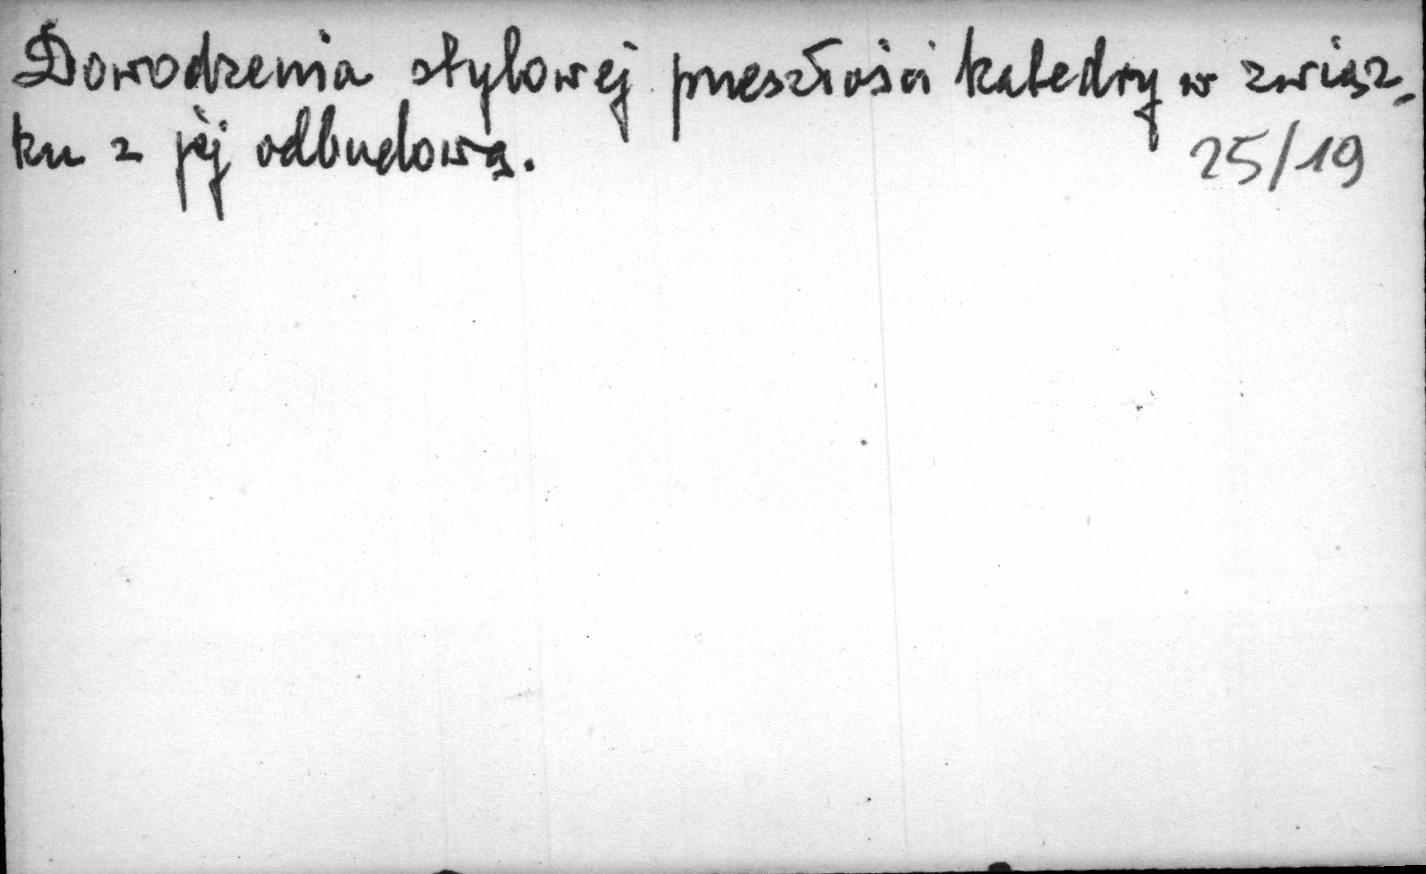 Dowodzenia stylowej przeszłości katedry w związ-
ku z jej odbudową.
25/19